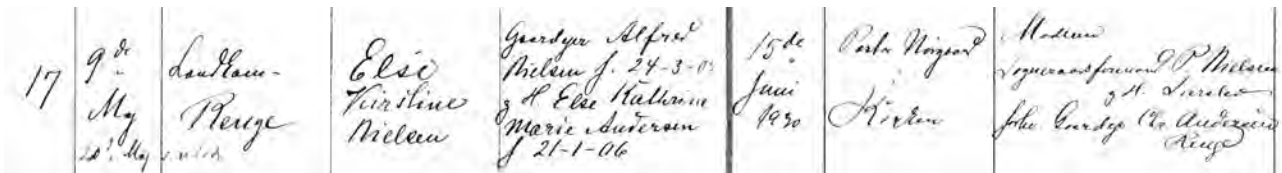 17
9de
Maj
Ringe
Else
Kirstine
Nielsen
Gaardejer Alfred
Nielsen f. 24-3-0
og H. Else Kathrine
Marie Andersen
f 21-1-06
15de
Juni
1930
Pastor Nørgaard
Kirken
Moderen
Sogneraadsformand P Nielsen
og H.
Gaardejer Andersen
Ringe